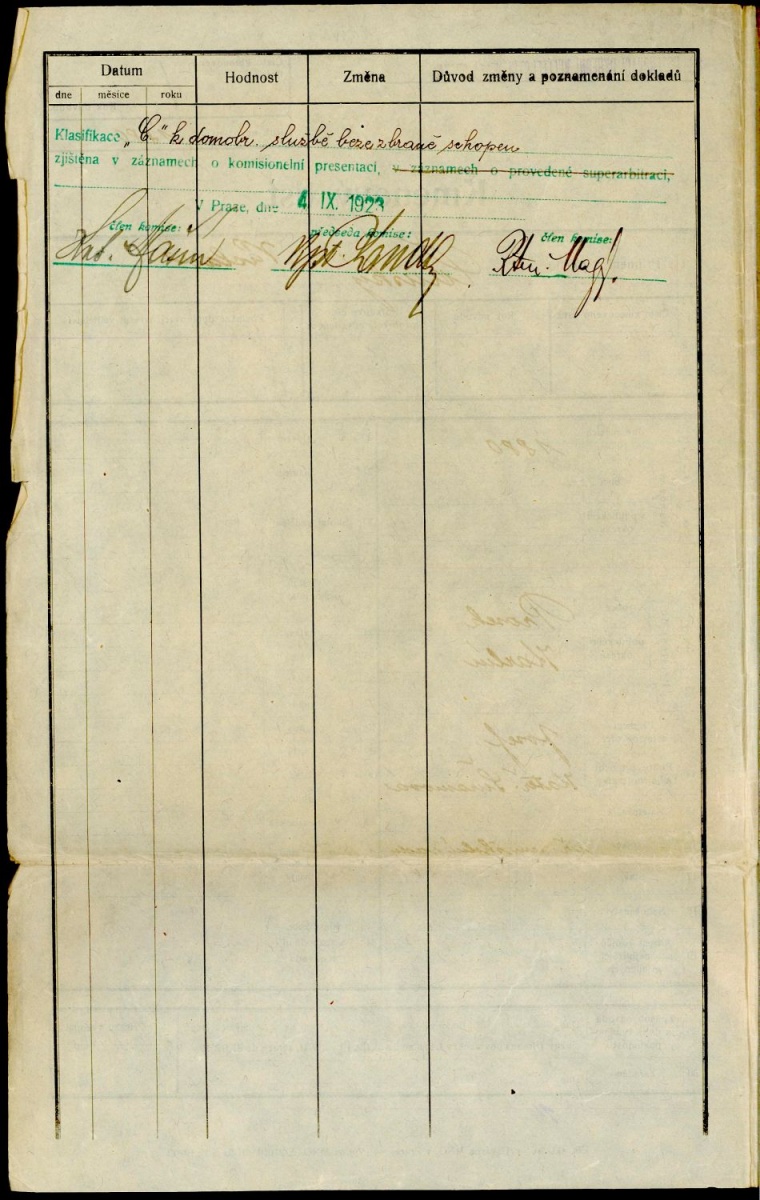 Datum Hodnost Změna Důvod změny a poznamenání dokladů
dne měsíce roku
Klasifikace „C" k domobr. službě beze zbraně schopen
zjištěna v záznamech o komisionelní presentaci, v záznamech o provedené superarbitraci,
V Praze, dne 4 IX. 1923
člen komise: předseda komise: člen komise: